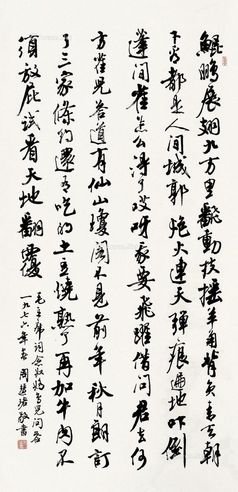 鯤鵬展翅九万里翻動扶搖羊角背負青天朝
下看都是人間城郭炮火連天彈痕遍地吓倒
蓬間雀怎么得了哎呀我要飛躍借問君去何
方雀兒答道有仙山瓊閣不見前年秋月朗訂
了三家條約還有吃的土豆燒熟了再加牛肉不
須放屁試看天地翻覆
毛主席詞念奴嬌鳥兒問答
一九七六年 周慧珺敬書